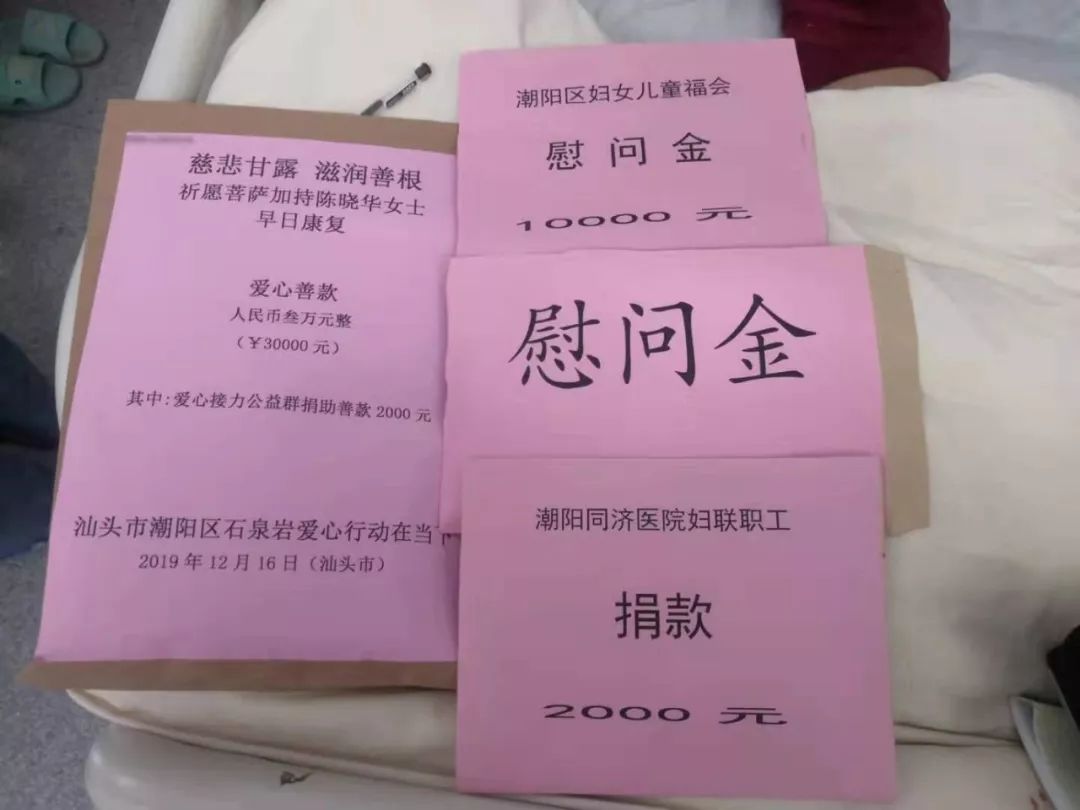 慈悲甘露 滋润善根
祈愿菩萨加持陈晓华女士
早日康复
爱心善款
人民币叁万元整
（￥30000 元）
其中:爱心接力公益群捐助善款 2000 元
汕头市潮阳区石泉岩爱心行动在当
2019 年 12 月 16 日（汕头市）
潮阳区妇女儿童福会
慰 问 金
10000 元
慰问金
潮阳同济医院妇联职工
捐款
2000 元